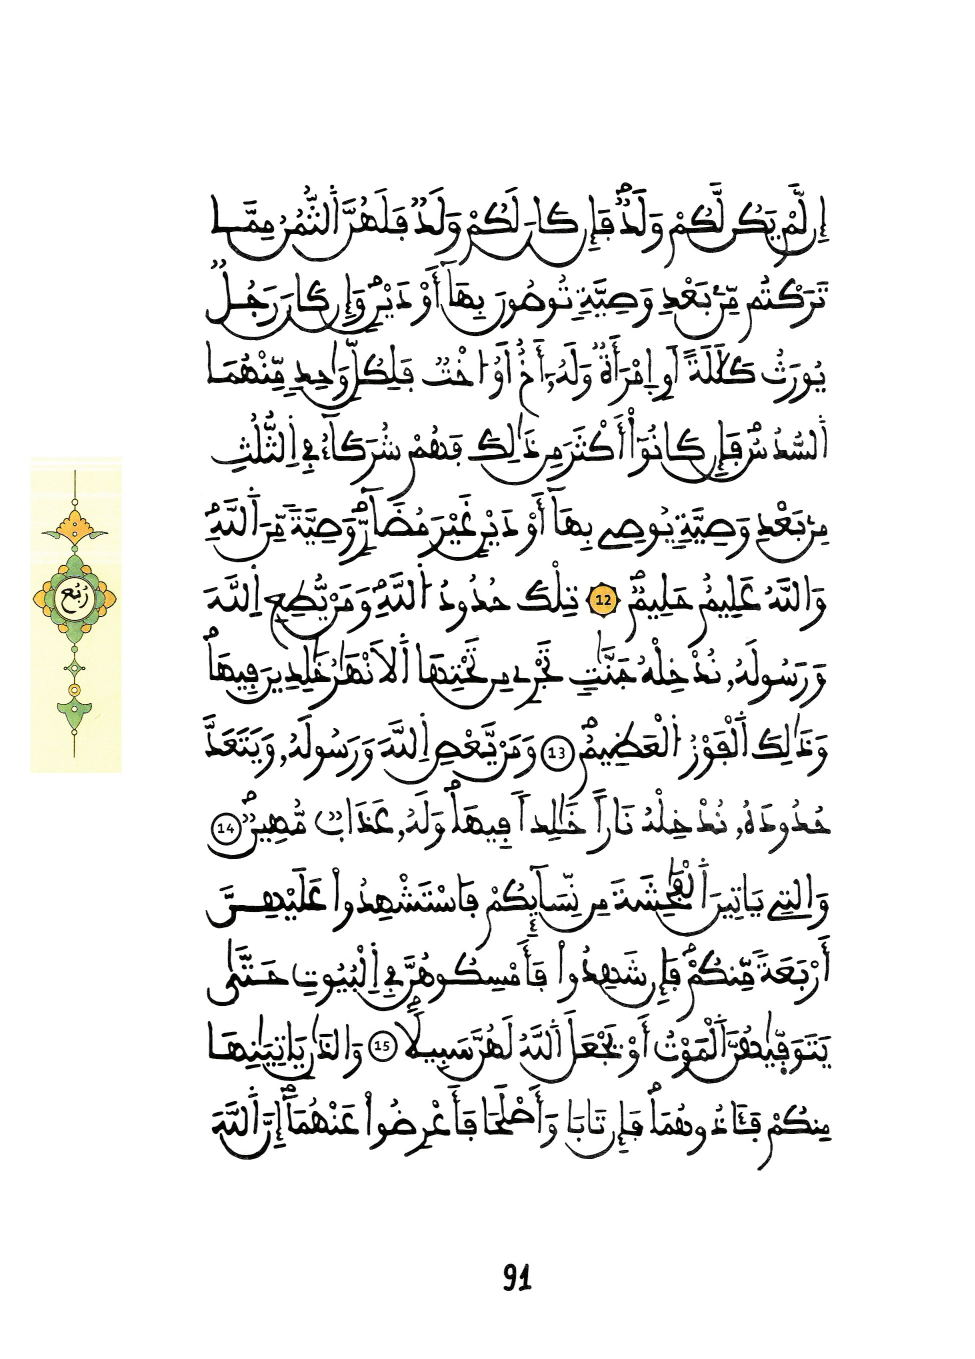 إِن لَّمْ يَكُن لَّكُمْ وَلَدٌ فَإِن كَانَ لَكُمْ وَلَدٌ فَلَهُنَّ اَ۬لثُّمُنُ مِمَّا
تَرَكْتُم مِّنۢ بَعْدِ وَصِيَّةٍ تُوصُونَ بِهَآ أَوْ دَيْنٍ وَإِن كَانَ رَجُلٌ
يُورَثُ كَلَٰلَةً أَوِ اِ۪مْرَأَةٌ وَلَهُۥٓ أَخٌ أَوُ ا۟خْتٌ فَلِكُلِّ وَٰحِدٍ مِّنْهُمَا
اَ۬لسُّدُسُ فَإِن كَانُوٓاْ أَكْثَرَ مِن ذَٰلِكَ فَهُمْ شُرَكَآءُ فِي اِ۬لثُّلُثِ
مِنۢ بَعْدِ وَصِيَّةٍ يُوصِے بِهَآ أَوْ دَيْنٍ غَيْرَ مُضَآرٍّ وَصِيَّةً مِّنَ اَ۬للَّهِ
وَاللَّهُ عَلِيمٌ حَلِيمٌ 12 تِلْكَ حُدُودُ اُ۬للَّهِ وَمَنْ يُّطِعِ اِ۬للَّهَ
وَرَسُولَهُۥ نُدْخِلْهُ جَنَّٰتٍ تَجْرِے مِن تَحْتِهَا اَ۬لَانْهَٰرُ خَٰلِدِينَ فِيهَا
وَذَٰلِكَ اَ۬لْفَوْزُ اُ۬لْعَظِيمُ 13 وَمَنْ يَّعْصِ اِ۬للَّهَ وَرَسُولَهُۥ وَيَتَعَدَّ
حُدُودَهُۥ نُدْخِلْهُ نَاراً خَٰلِداً فِيهَا وَلَهُۥ عَذَابٌ مُّهِينٌ 14
وَالتِے يَاتِينَ اَ۬لْفَٰحِشَةَ مِن نِّسَآئِكُمْ فَاسْتَشْهِدُواْ عَلَيْهِنَّ
أَرْبَعَةً مِّنكُمْ فَإِن شَهِدُواْ فَأَمْسِكُوهُنَّ فِي اِ۬لْبُيُوتِ حَتَّىٰ
يَتَوَفّ۪يٰهُنَّ اَ۬لْمَوْتُ أَوْ يَجْعَلَ اَ۬للَّهُ لَهُنَّ سَبِيلاً 15 وَالذَٰنِ يَاتِيَٰنِهَا
مِنكُمْ فَـَٔاذُوهُمَا فَإِن تَابَا وَأَصْلَحَا فَأَعْرِضُواْ عَنْهُمَآ إِنَّ اَ۬للَّهَ
رُبُع
91